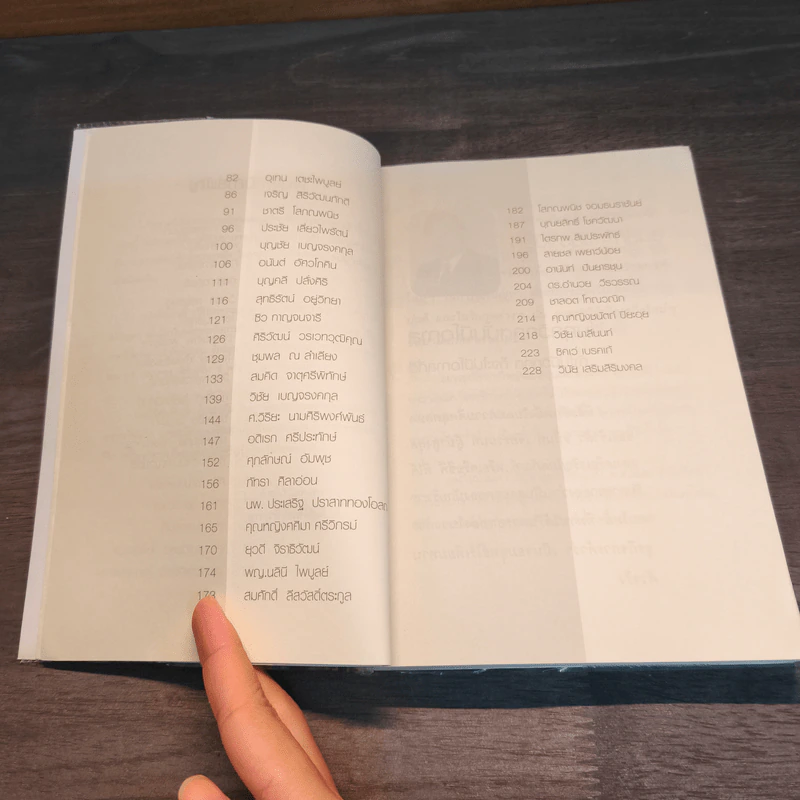 82 อุเทน เตชะไพบูลย์
86 เจริญ สิริวัฒนภักดี
91 ชาตรี โสภณพนิช
96 ประชัย เลี่ยวไพรัตน์
100 บุญชัย เบญจรงคกุล
106 อนันต์ อัศวโภคิน
111 บุญคลี ปลั่งศิริ
116 สุทธิรัตน์ อยู่วิทยา
121 ชิว กาญจนจารี
126 ศิริวัฒน์ วรเวทวุฒิคุณ
129 ชุมพล ณ ลำเลียง
133 สมคิด จาตุศรีพิทักษ์
139 วิชัย เบญจรงคกุล
144 ศ.วิริยะ นามศิริพงศ์พันธุ์
147 อดิเรก ศรีประทักษ์
152 ศุภลักษณ์ อัมพุช
156 ภัทรา ศิลาอ่อน
161 นพ. ประเสริฐ ปราสาททองโอสถ
165 คุณหญิงศศิมา ศรีวิกรม์
170 ยุวดี จิราธิวัฒน์
174 พญ.นลินี ไพบูลย์
สมศักดิ์ ลีสวัสดิ์ตระกูล
182 โสภณพนิช จอมธนราชันย์
187 บุณยสิทธิ์ โชควัฒนา
191 ไตรภพ ลิมปพัทธ์
196 สายชล เพยาว์น้อย
200 อานันท์ ปันยารชุน
204 ดร.อำนวย วีรวรรณ
209 ชาลอต โทณวณิก
214 คุณหญิงชนัตถ์ ปิยะอุย
218 วิชัย มาลีนนท์
223 ชิคเว่ เบรคเก้
228 วินัย เสริมศิริมงคล